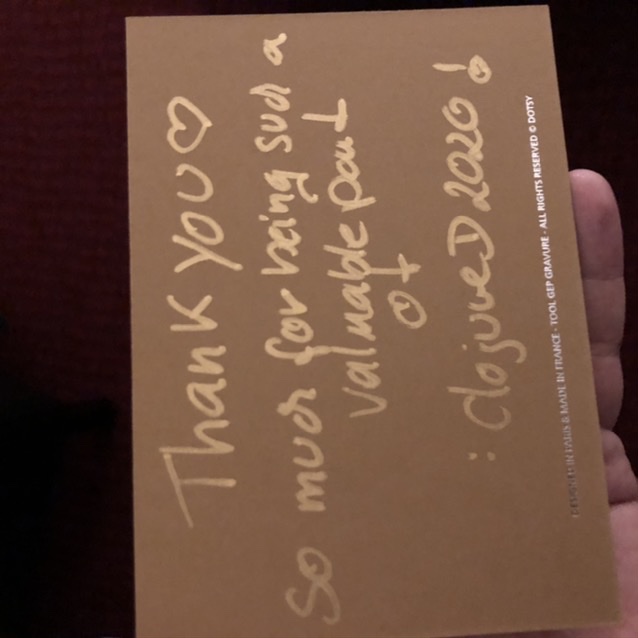 Thank you ♡
so much for being such a
valuable part
of
: clojureD 2020!
DESIGNED IN PARIS & MADE IN FRANCE - TOOL GEP GRAVURE - ALL RIGHTS RESERVED © DOTSY